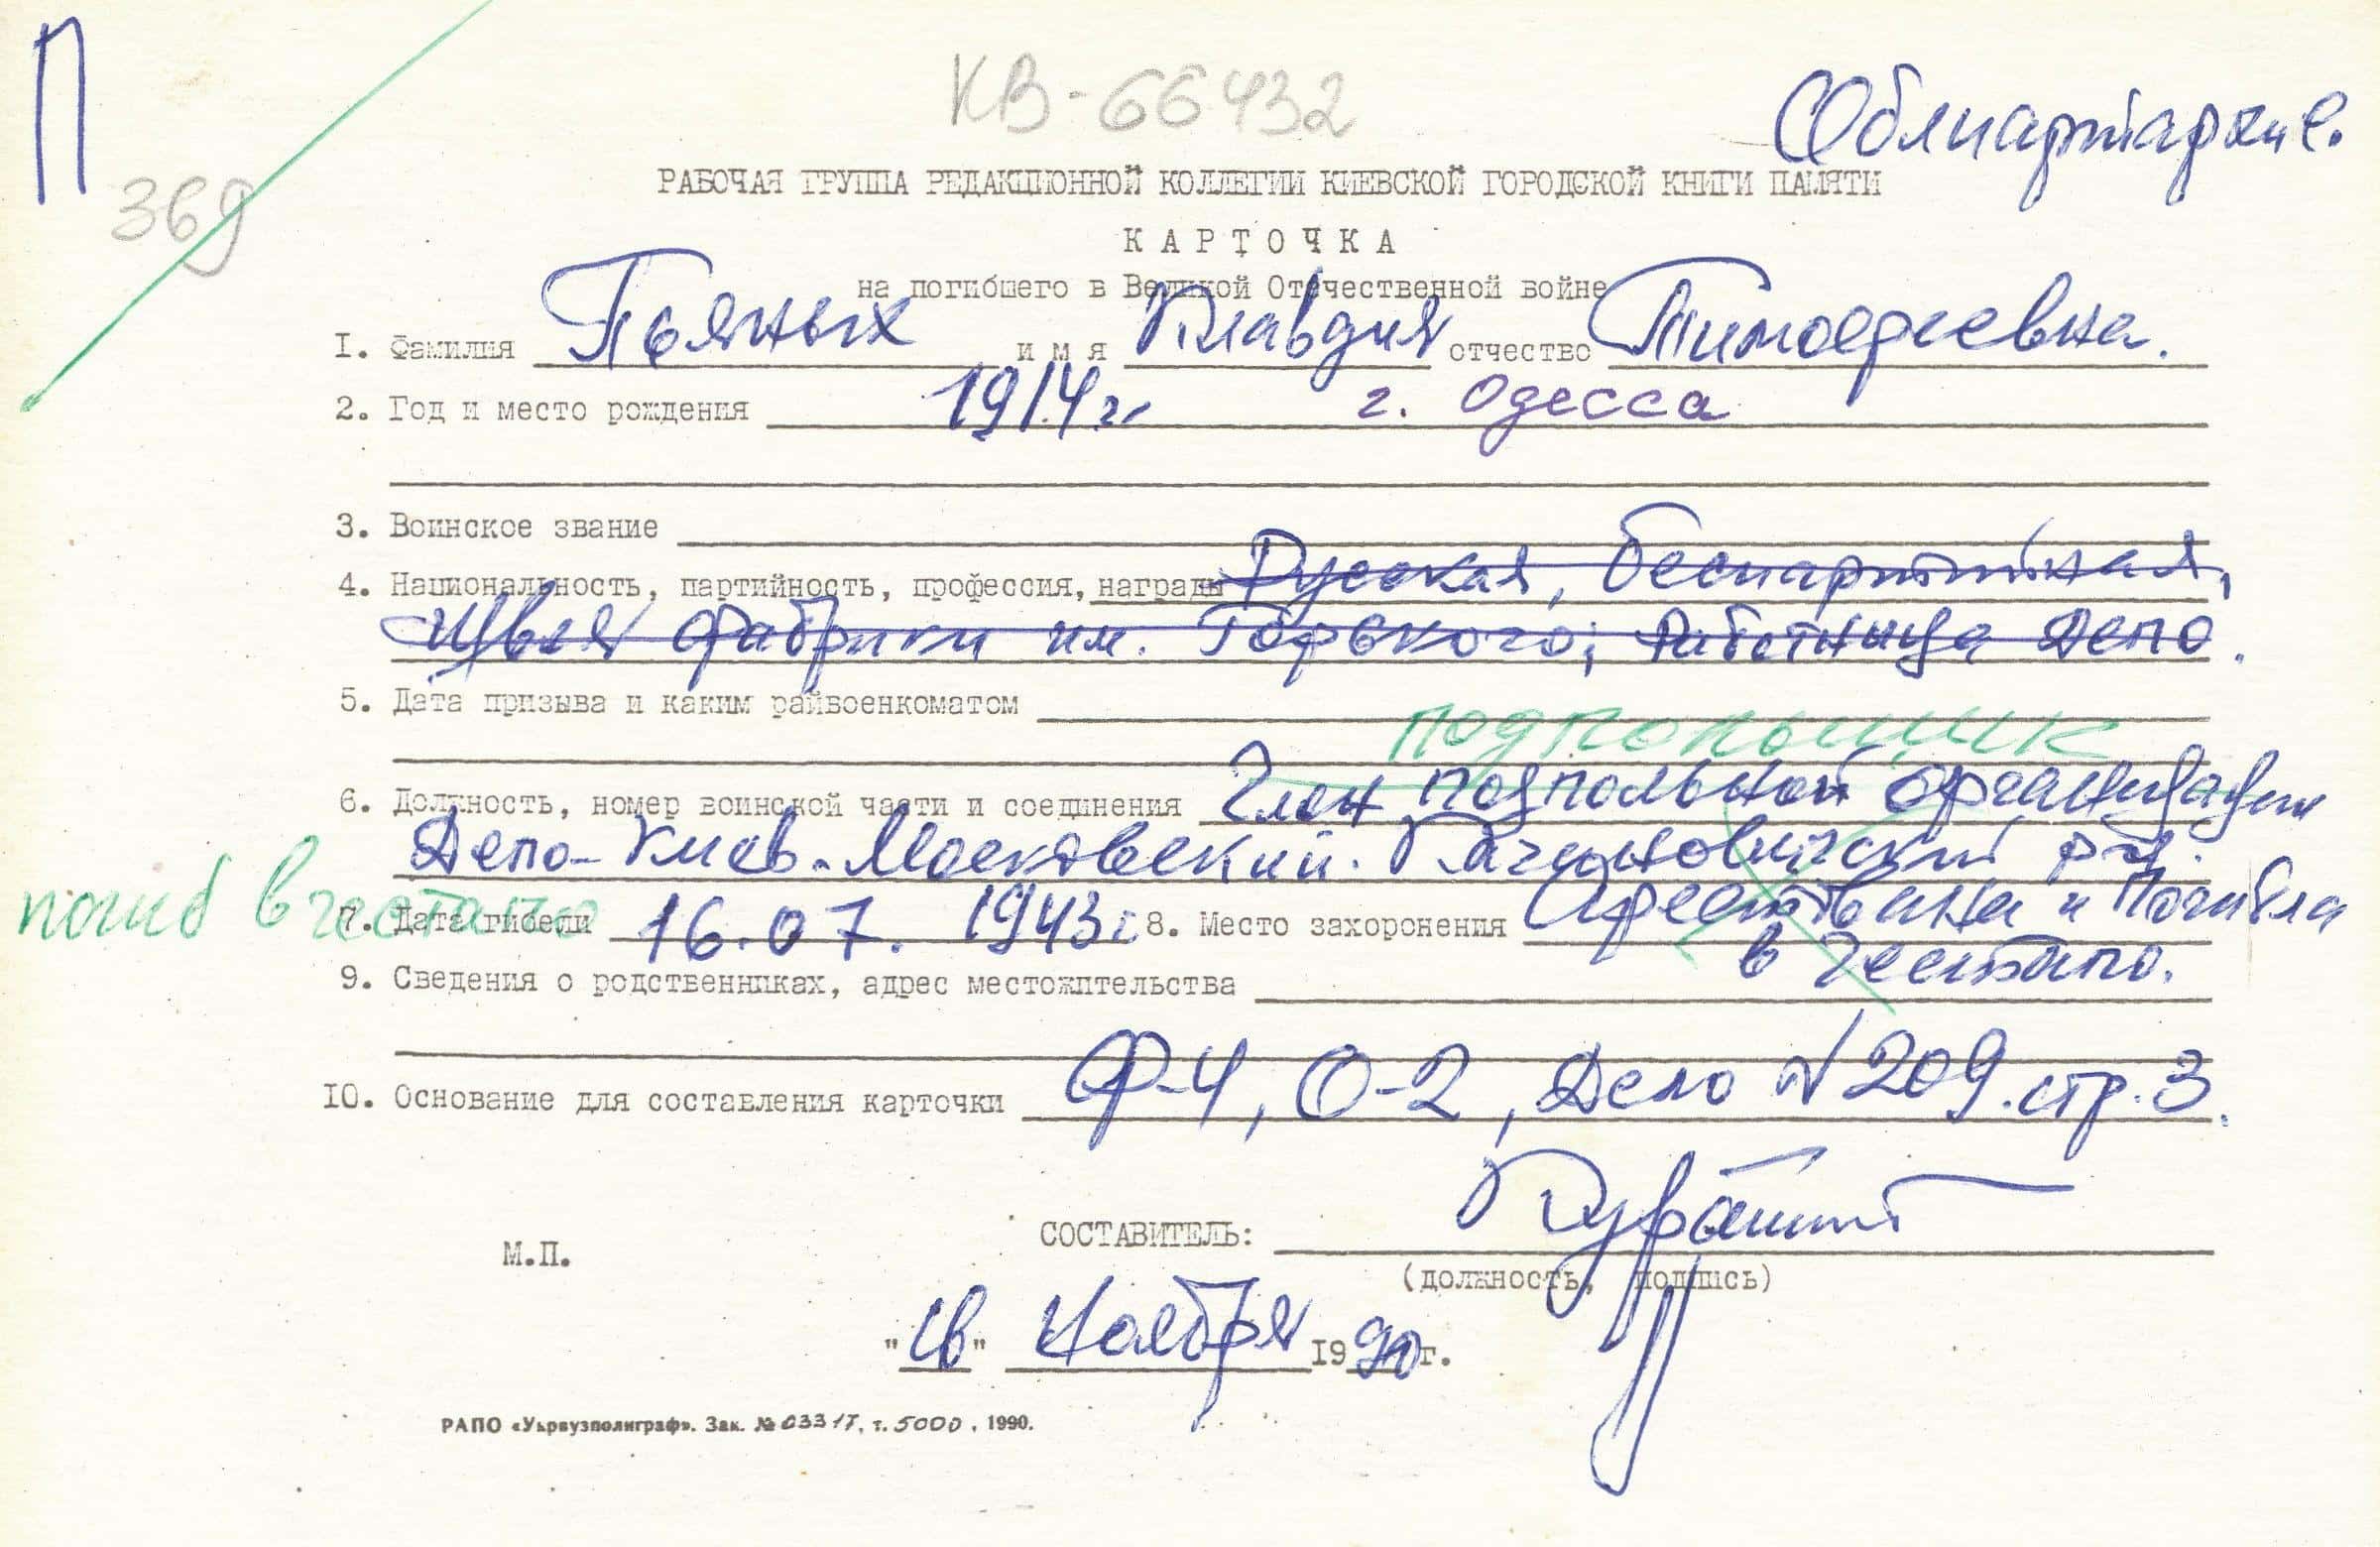 П
КВ-66432
Облпартархив.
369
РАБОЧАЯ ГРУППА РЕДАКЦИОННОЙ КОЛЛЕГИИ КИЕВСКОЙ ГОРОДСКОЙ КНИГИ ПАМЯТИ
КАРТОЧКА
на погибшего в Великой Отечественной войне
I. Фамилия Пьяных имя Клавдия отчество Тимофеевна.
2. Год и место рождения 1914 г. г. Одесса
3. Воинское звание
4. Национальность, партийность, профессия, награды Русская, беспартийная,
Швея фабрики им. Горького, Работница Депо.
5. Дата призыва и каким райвоенкоматом
подпольщик
6. Должность, номер воинской части и соединения Член подпольной организации
Депо-Киев-Московский. Кагановичский р-н.
погиб в гестапо
7. Дата гибели 16.07.1943 г 8. Место захоронения Арестована и погибла
в гестапо.
9. Сведения о родственниках, адрес местожительства
10. Основание для составления карточки Ф-4, О-2, Дело № 209. стр. 3.
М.П.
СОСТАВИТЕЛЬ:
(должность, подпись)
Ноября 1990г.
РАПО «Укрвузполиграф». Зак. № 03317, т. 5000, 1990.